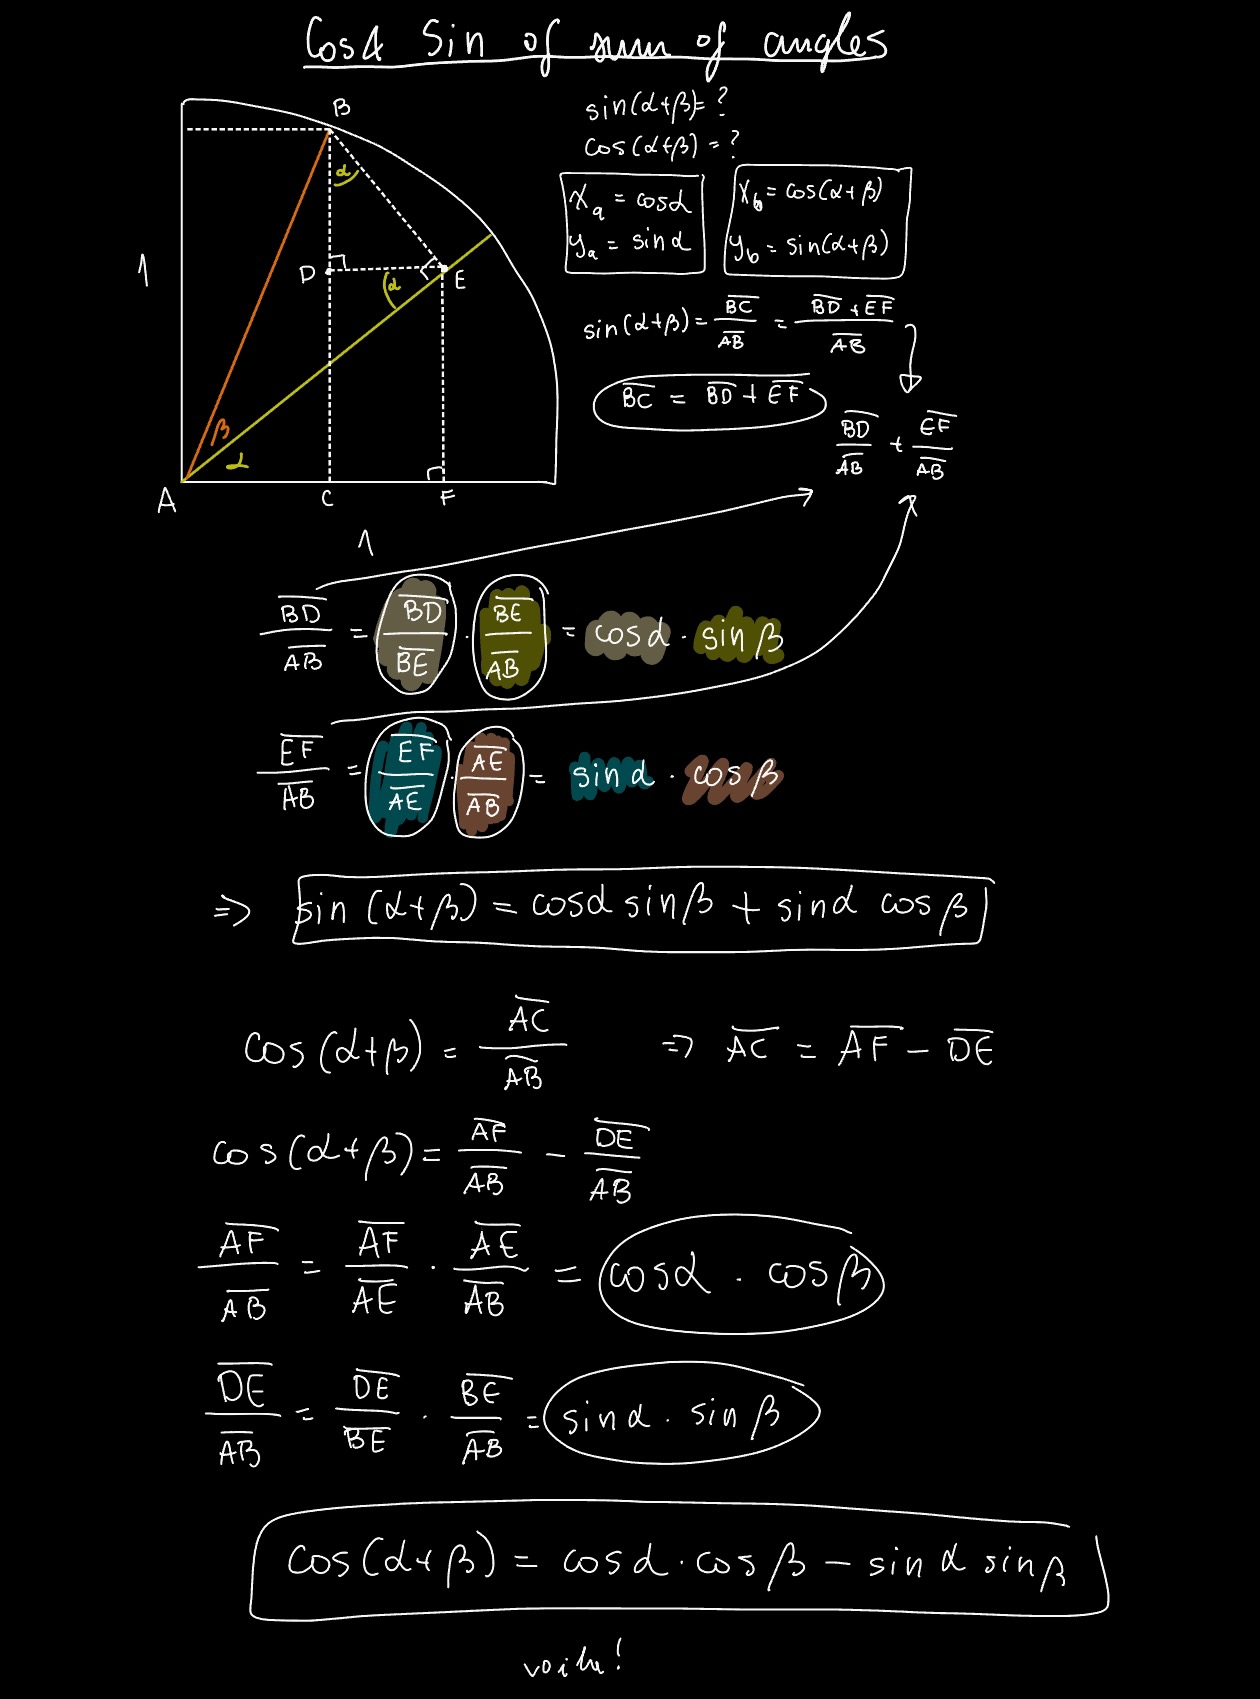 Cos & Sin of sum of angles
sin(α+β)= ?
cos(α+β) = ?
x_a = cosα
y_a = sinα
x_b = cos(α+β)
y_b = sin(α+β)
B
α
1
D
E
α
β
α
A
C
F
1
sin(α+β) = BC̅/AB̅ = (BD̅ + EF̅)/AB̅
BC̅ = BD̅ + EF̅
BD̅/AB̅ + EF̅/AB̅
BD̅/AB̅ = BD̅/BE̅ · BE̅/AB̅ = cosα · sinβ
EF̅/AB̅ = EF̅/AE̅ · AE̅/AB̅ = sinα · cosβ
=> sin(α+β) = cosα sinβ + sinα cosβ
cos(α+β) = AC̅/AB̅ => AC̅ = AF̅ - DE̅
cos(α+β) = AF̅/AB̅ - DE̅/AB̅
AF̅/AB̅ = AF̅/AE̅ · AE̅/AB̅ = cosα · cosβ
DE̅/AB̅ = DE̅/BE̅ · BE̅/AB̅ = sinα · sinβ
cos(α+β) = cosα · cosβ - sinα sinβ
voila!